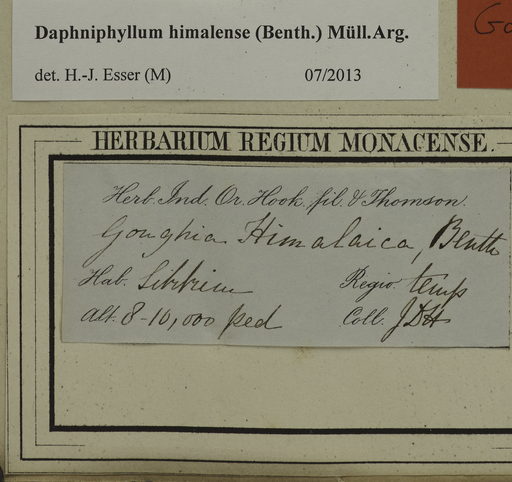 Daphniphyllum himalense (Benth.) Müll.Arg.
det. H.-J. Esser (M) 07/2013
HERBARIUM REGIUM MONACENSE.
Herb. Ind. Or. Hook. fil. & Thomson.
Goughia Himalaica, Benth
Hab. Sikkim Regio. temp
Alt. 8-10,000 ped Coll. JDH